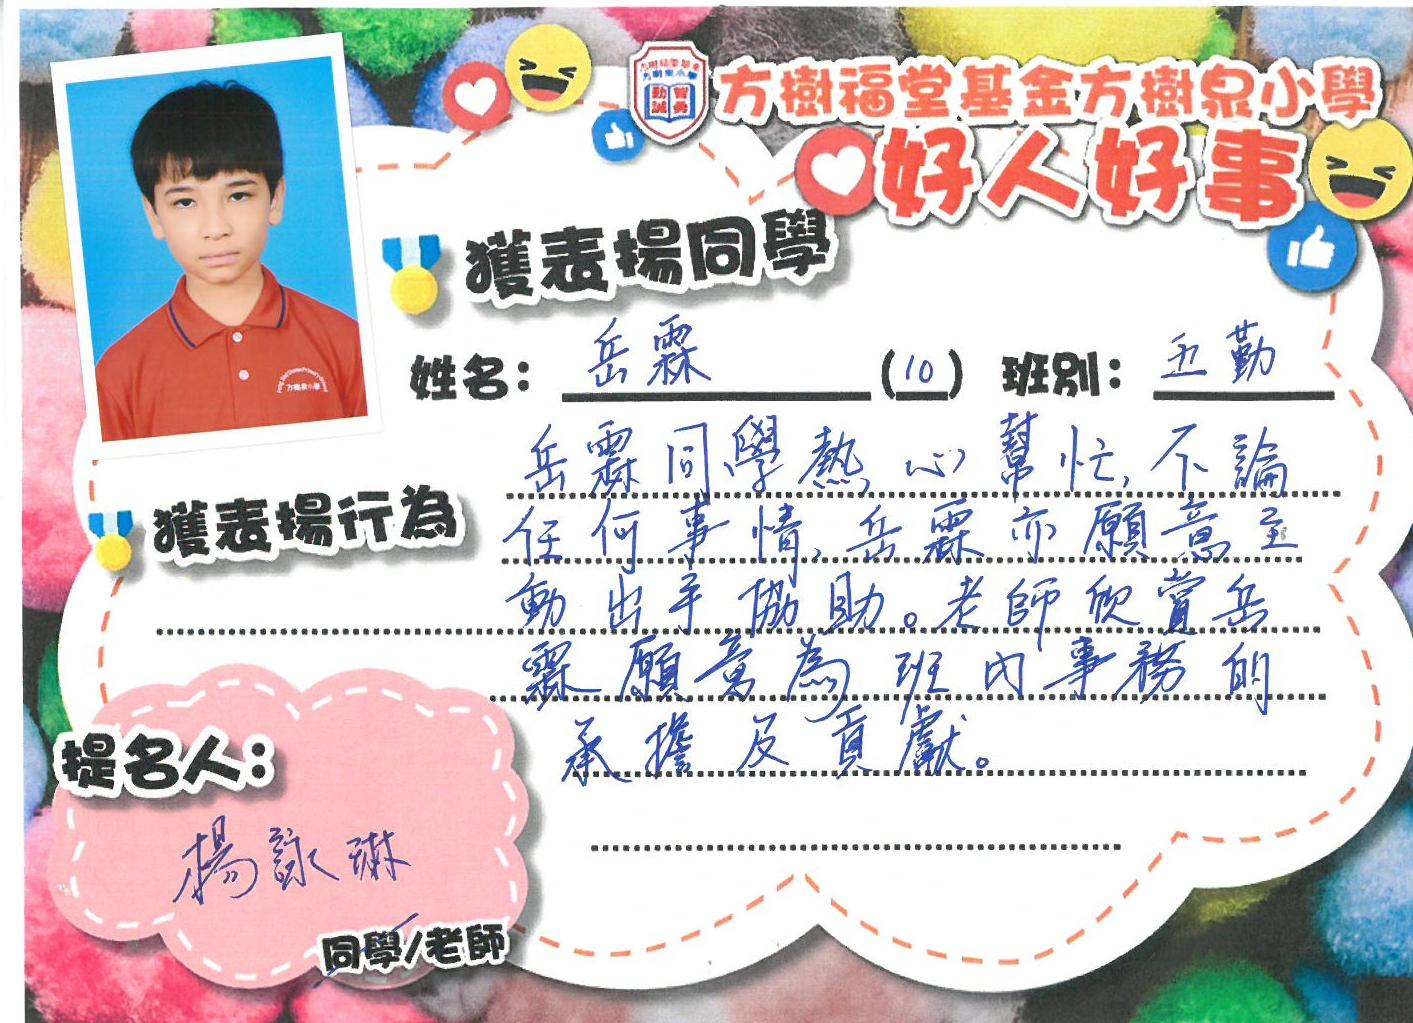 方樹福堂基金方樹泉小學
好人好事
獲表揚同學
姓名： 岳霖 (10) 班別： 五勤
獲表揚行為
岳霖同學熱心幫忙，不論
任何事情，岳霖亦願意主
動出手協助。老師欣賞岳
霖願意為班內事務的
承擔及貢獻。
提名人：
楊詠琳
同學/老師
方樹泉小學